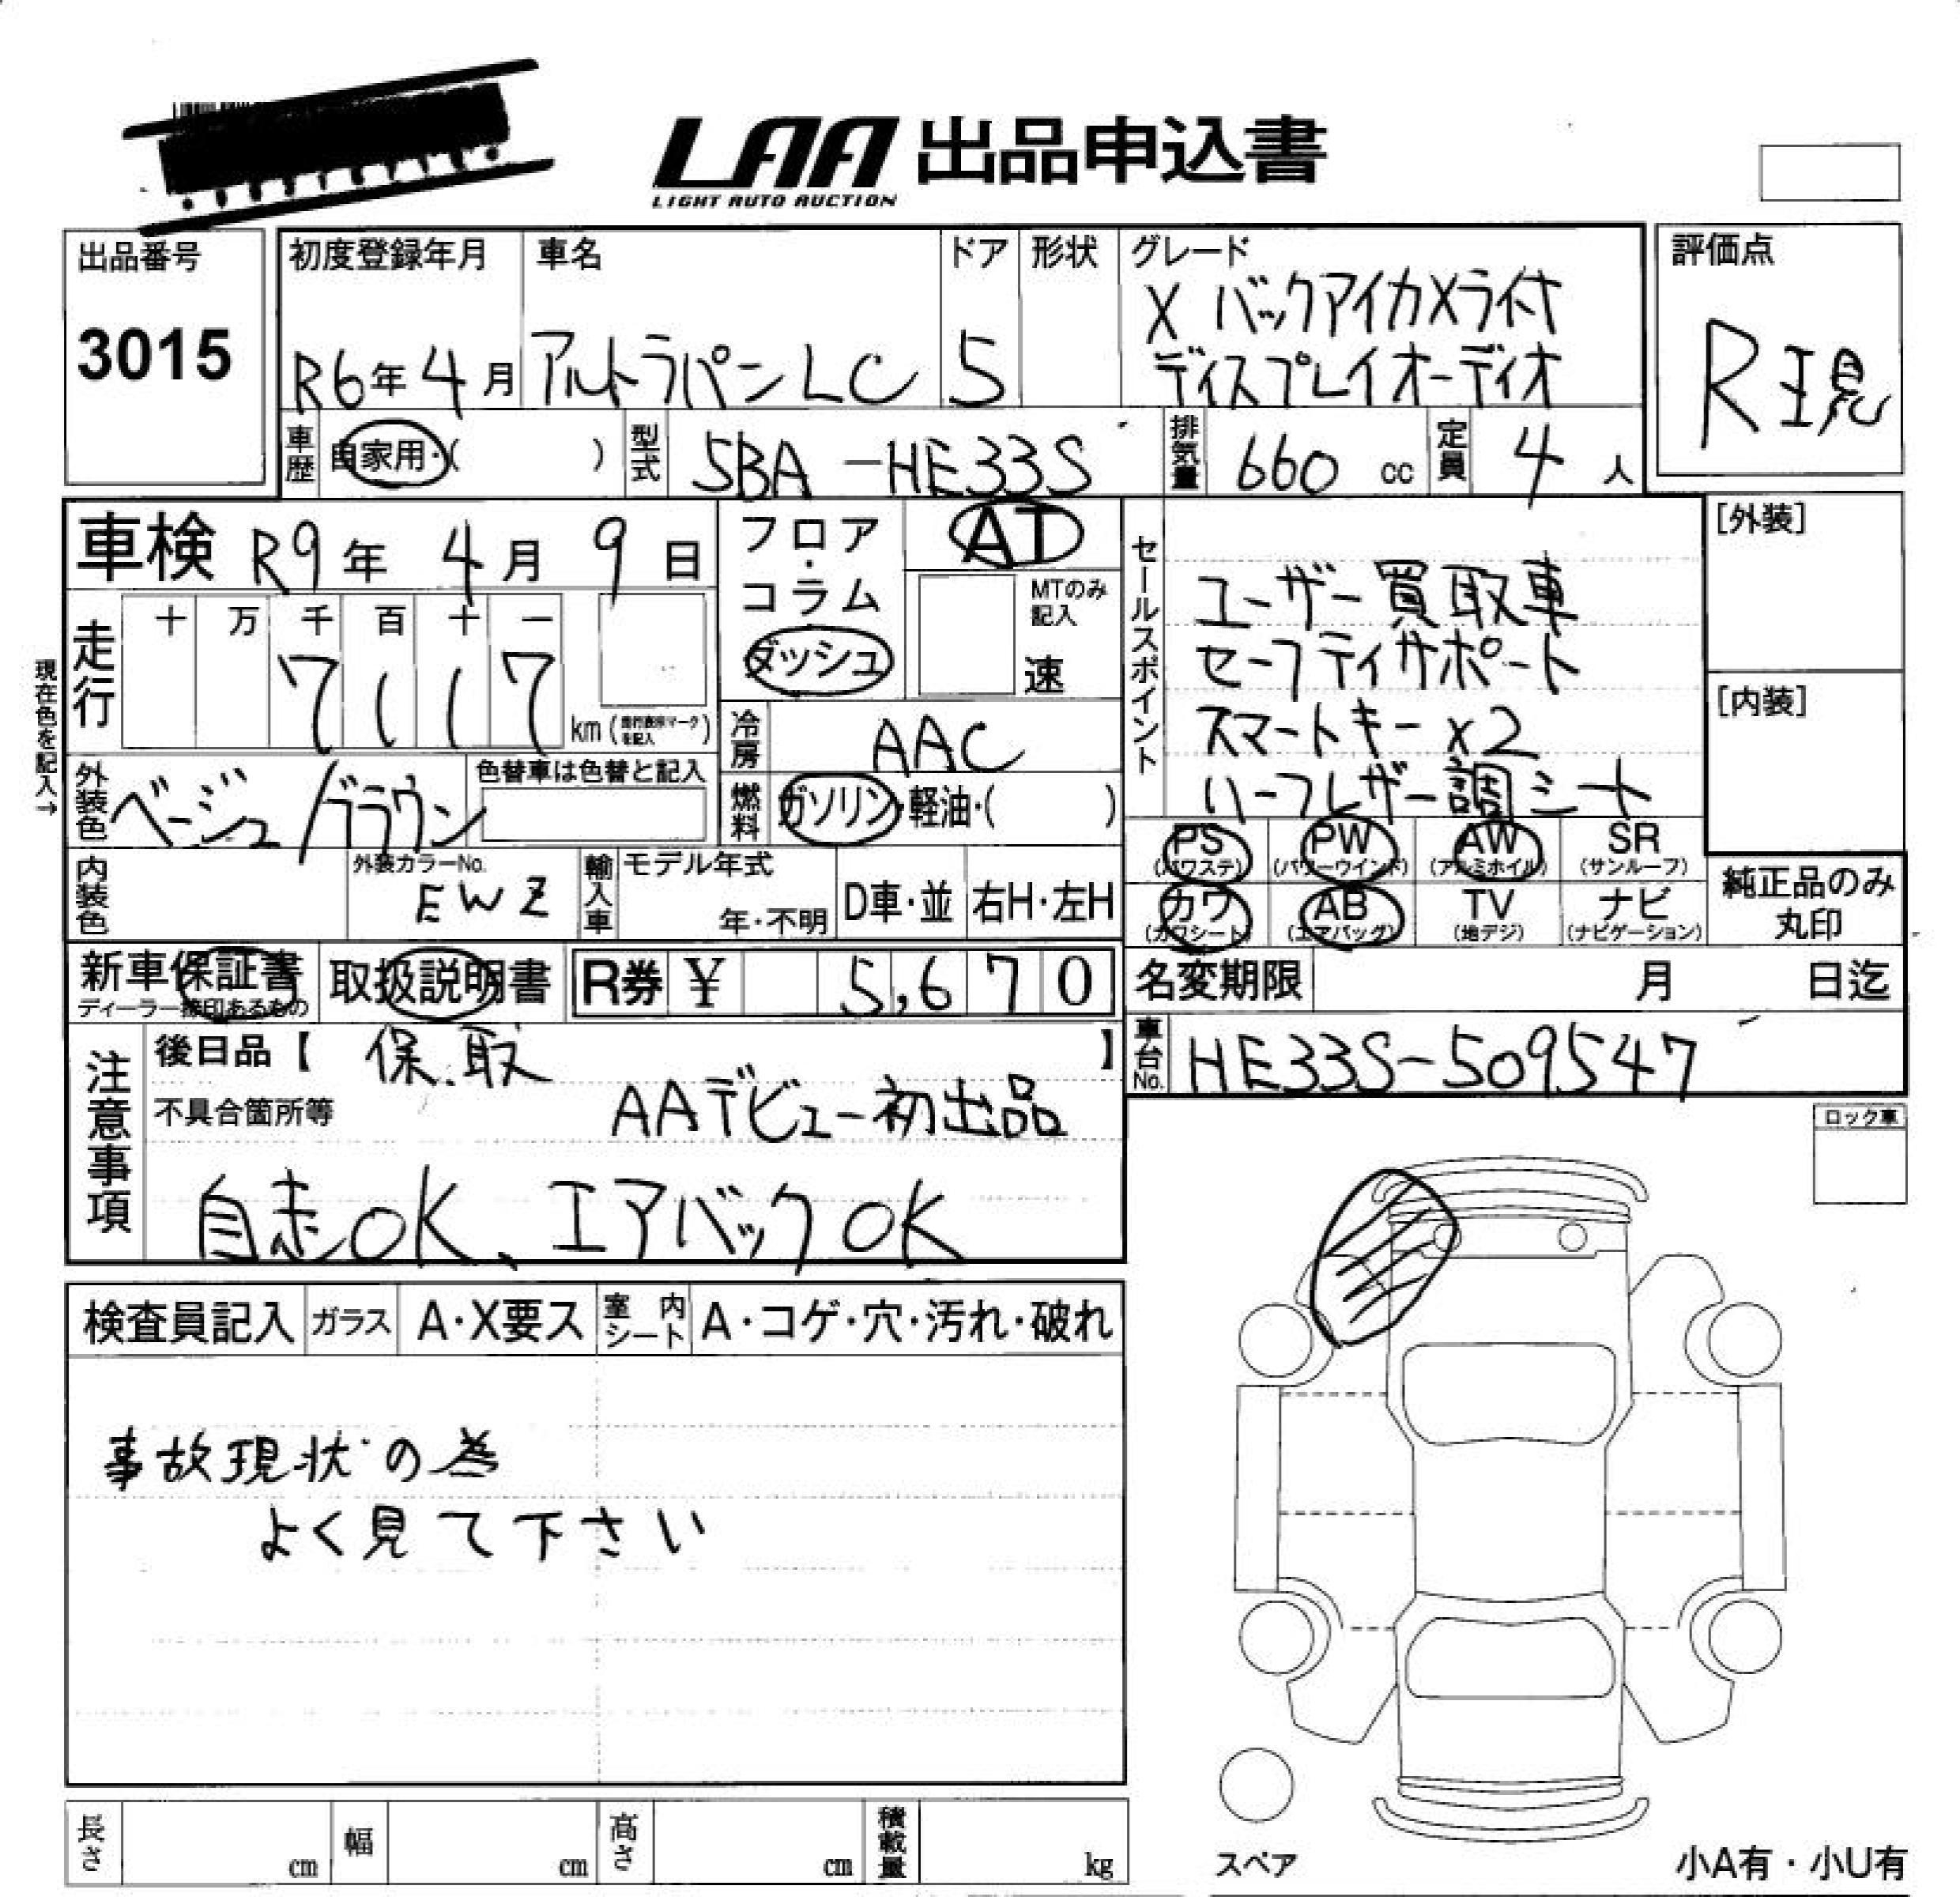 LAA 出品申込書
LIGHT AUTO AUCTION
出品番号
3015
初度登録年月
R6年4月
車名
アルトラパンLC
ドア
5
形状
グレード
X バックアイカメラ付
ディスプレイオーディオ
評価点
R現
車歴
自家用・( )
型式
5BA-HE33S
排気量
660 cc
定員
4 人
車検 R9年 4月 9日
走行
十 万 千 百 十 一
7 1 1 7
km (走行表示マークを記入)
現在色を記入→
外装色
ベージュ/ブラウン
色替車は色替と記入
内装色
外装カラーNo.
EWZ
フロア・コラム
ダッシュ
AT
MTのみ記入
速
冷房
AAC
燃料
ガソリン・軽油・( )
輸入車
モデル年式
年・不明
D車・並
右H・左H
セールスポイント
ユーザー買取車
セーフティサポート
スマートキー x2
ハーフレザー調シート
[外装]
[内装]
PS (パワステ)
PW (パワーウインド)
AW (アルミホイル)
SR (サンルーフ)
カワ (カワシート)
AB (エアバッグ)
TV (地デジ)
ナビ (ナビゲーション)
純正品のみ
丸印
新車保証書
ディーラー捺印あるもの
取扱説明書
R券 ¥ 5,670
名変期限 月 日迄
車台No.
HE33S-509547
注意事項
後日品【 保.取 】
不具合箇所等
AAデビュー初出品
自走OK、エアバックOK
ロック車
検査員記入
ガラス
A・X要ス
室内シート
A・コゲ・穴・汚れ・破れ
事故現状の為
よく見て下さい
長さ cm
幅 cm
高さ cm
積載量 kg
スペア
小A有・小U有